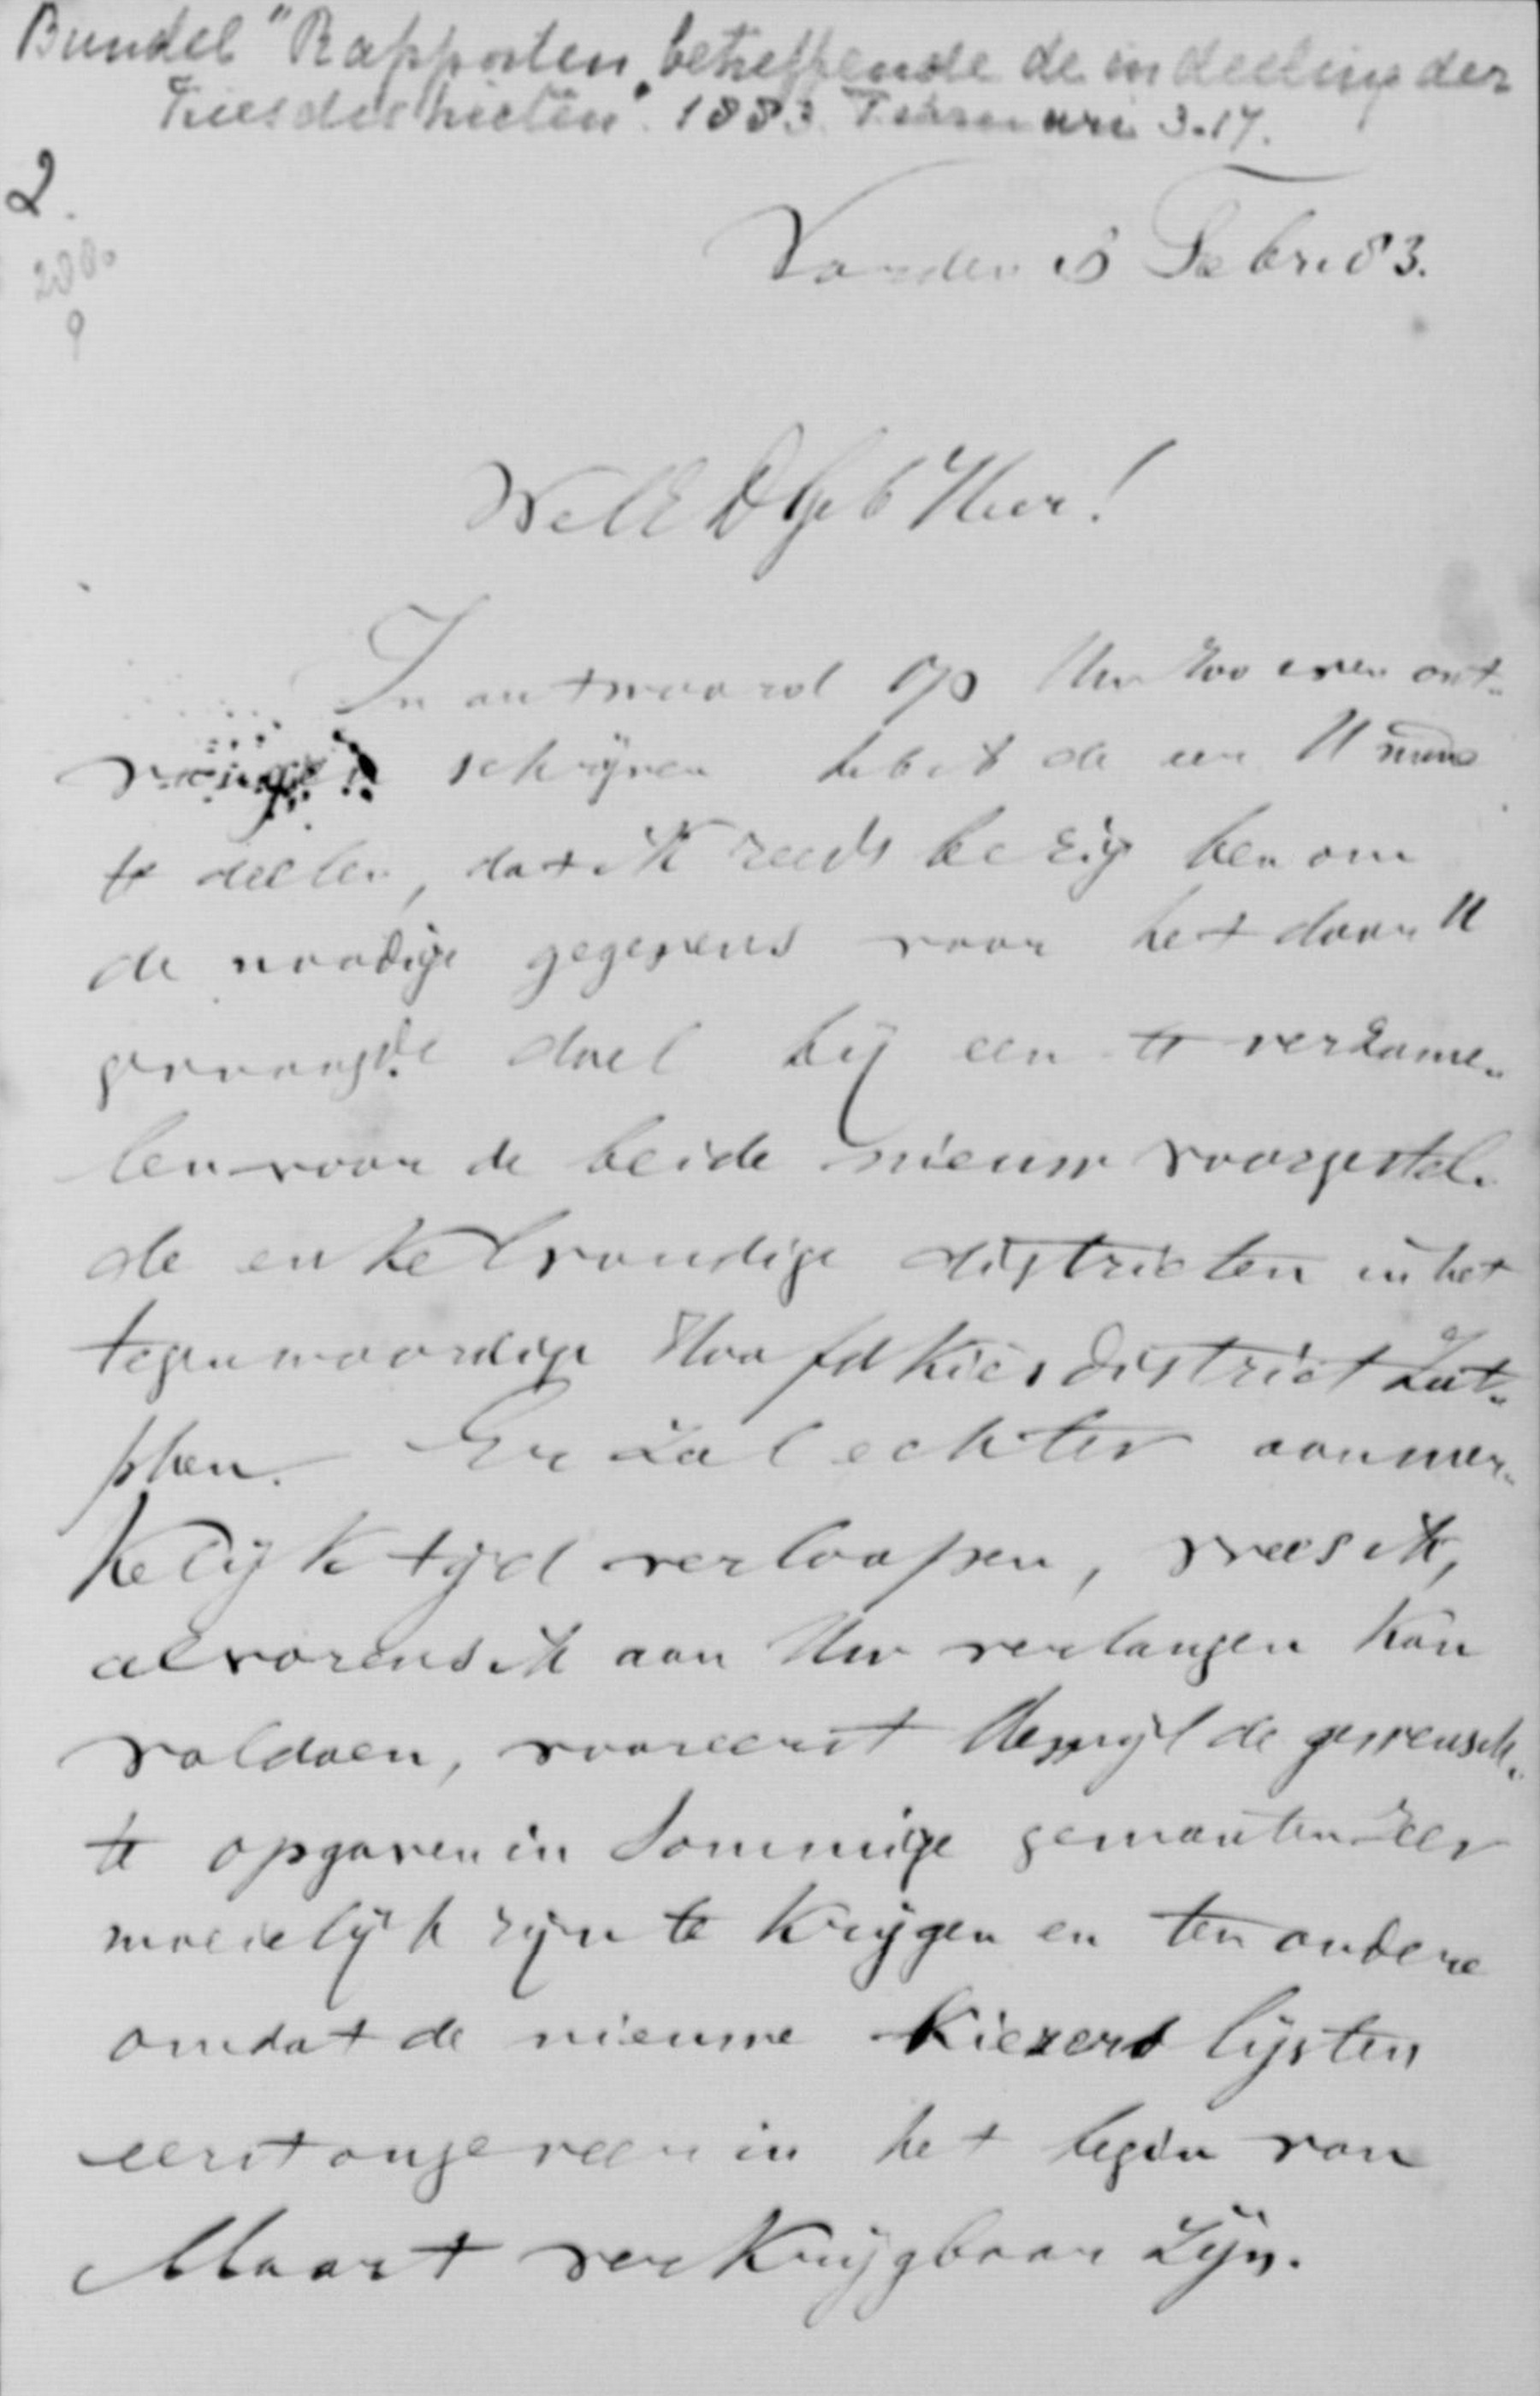 Bundel "Rapporten betreffende de indeeling der
Kiesdistricten". 1883. Februari 3-17.
2.
Vorden 8 Febr. 83.
WelEDGeb Heer!
In antwoord op Uw zoo even ont-
vangen schrijven heb ik de eer U mede
te deelen, dat ik reeds bezig ben om
de noodige gegevens voor het door U
gevraagde doel bij een te verzame-
len voor de beide nieuw voorgestel-
de enkelvoudige districten in het
tegenwoordige Hoofdkiesdistrict Zut-
phen. Er zal echter aanmer-
kelijk tijd verloopen, vrees ik,
alvorens ik aan Uw verlangen kan
voldoen, vooreerst dewijl de gewensch-
te opgaven in sommige gemeenten zeer
moeielijk zijn te krijgen en ten andere
omdat de nieuwe Kiezers lijsten
eerst ongeveer in het begin van
Maart verkrijgbaar zijn.